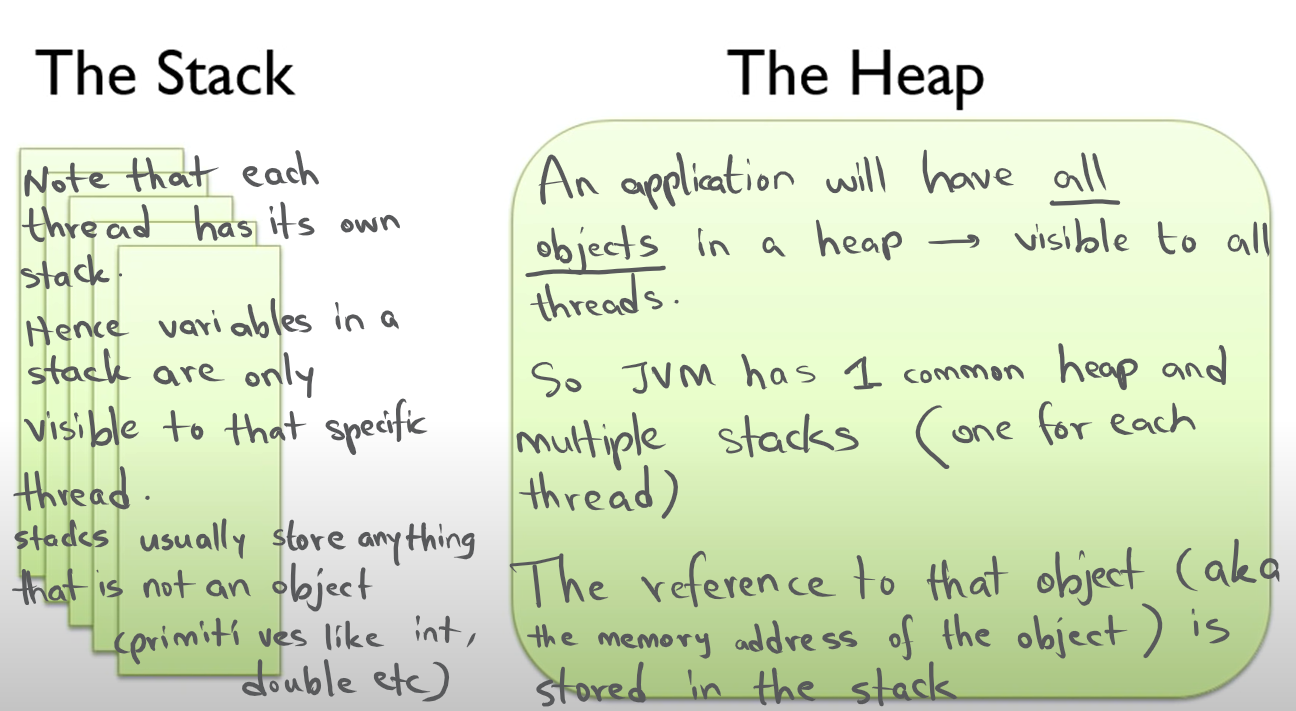 The Stack
Note that each
thread has its own
stack.
Hence variables in a
stack are only
visible to that specific
thread.
stacks usually store anything
that is not an object
(primitives like int,
double etc)
The Heap
An application will have all
objects in a heap → visible to all
threads.
So JVM has 1 common heap and
multiple stacks (one for each
thread)
The reference to that object (aka
the memory address of the object) is
stored in the stack